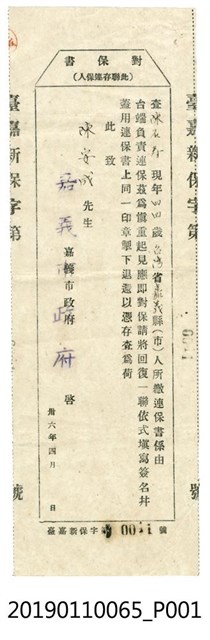 對保書
（此聯存連保人）
臺嘉新保字第
查陳 現年四四歲台灣省嘉義縣（市）人所繳連保書係由
台端負責連保茲為慎重起見應即對保請將回復一聯依式填寫簽名幷
蓋用連保書上同一印章擊下退還以憑存查為荷
此致
陳 先生
嘉義市政府 啓
嘉義市政府
卅六年四月 日
臺嘉新保字第
號
號
臺嘉新保字第0011號
20190110065_P001